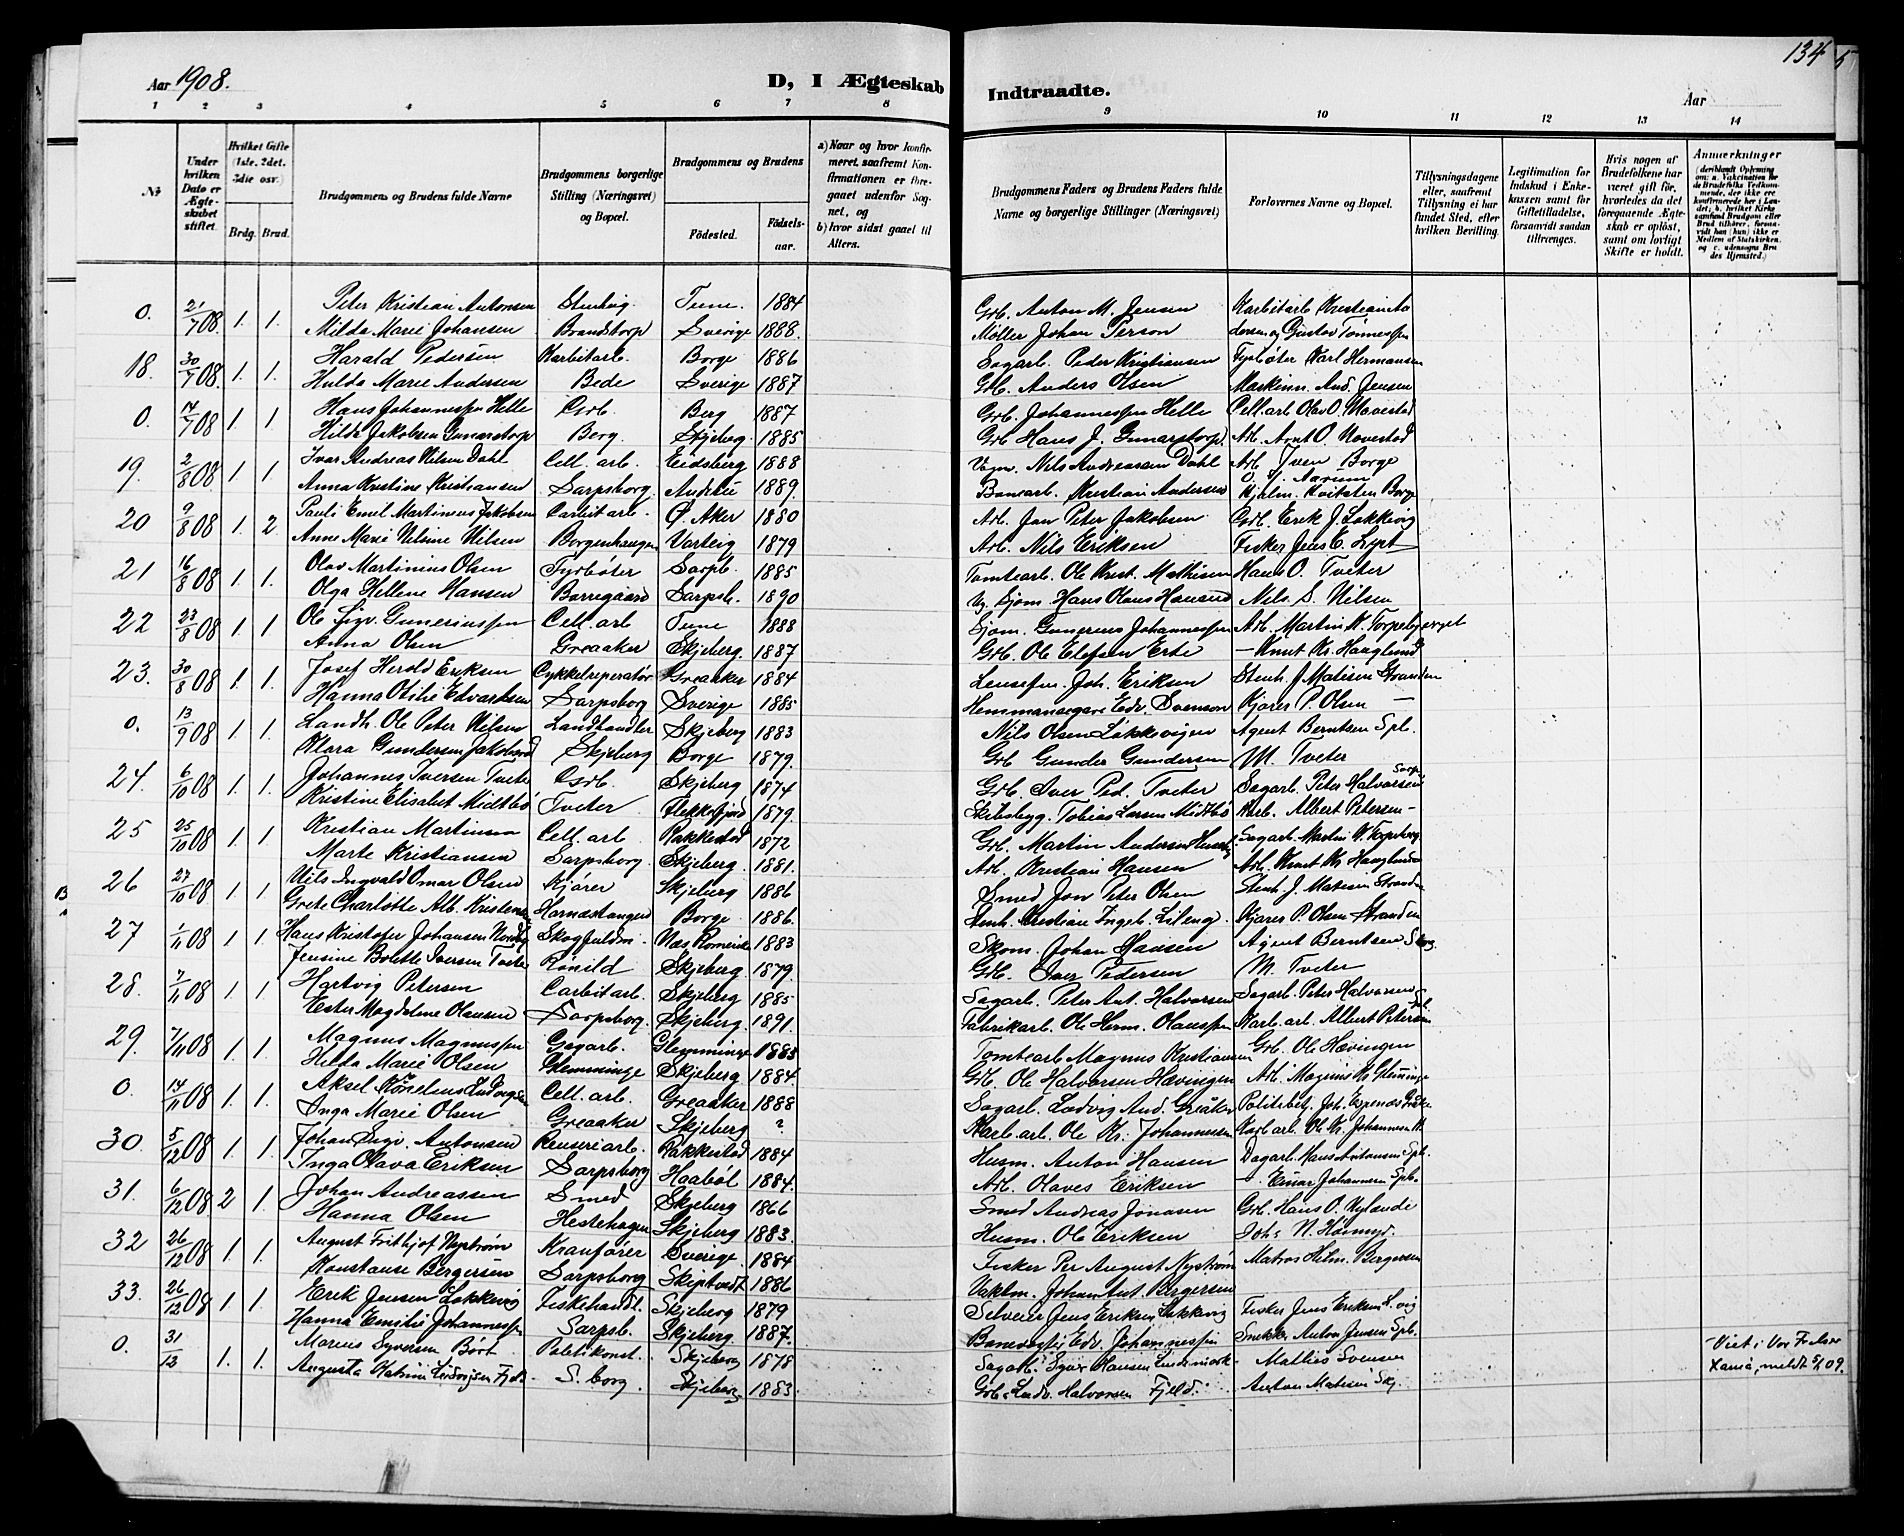 Aar 1908.
D, I Ægteskab Indtraadte.
134
Aar
1 2 3 4 5 6 7 8 9 10 11 12 13 14
No
Under hvilken Dato er Ægteskabet stiftet.
Hvilket Gifte (1ste, 2det, 3die osv.)
Brdg. Brud.
Brudgommens og Brudens fulde Navne
Brudgommens borgerlige Stilling (Næringsvei) og Bopæl.
Brudgommens og Brudens
Fødested.
Fødselsaar.
a) Naar og hvor konfirmeret, saafremt Konfirmationen er foregaaet udenfor Sognet, og
b) hvor sidst gaaet til Alters.
Brudgommens Faders og Brudens Faders fulde Navne og borgerlige Stillinger (Næringsvei)
Forlovernes Navne og Bopæl.
Tillysningsdagene eller, saafremt Tillysning ei har fundet Sted, efter hvilken Bevilling.
Legitimation for Indskud i Enkekassen samt for Giftetilladelse, forsaavidt saadan tiltrænges.
Hvis nogen af Brudefolkene har været gift før, hvorledes da det foregaaende Ægteskab er opløst, samt om lovligt Skifte er holdt.
Anmærkninger
(deriblandt Oplysning om: a. Vakcination for de Brudefolks Vedkommende, der ikke ere konfirmerede her i Landet; b. hvilket Kirkesamfund Brudgom eller Brud tilhører, forsaavidt han (hun) ikke er Medlem af Statskirken, og c. udensogns Brudes Hjemsted.)
0. 21/7 08 1. 1. Peter Kristian Antonsen Tune. 1884 Grb. Anton M. Jensen Karbitarb Kristian
Milda Marie Johansen Brandstorp Sverige 1888. Møller Johan Person Gustav Tønnessen
18. 30/7 08. 1. 1. Harald Pedersen Karbitarb. Borge 1886 Sagarb. Peder Kristiansen Fyrbøter Karl Hermansen
Hulda Marie Andersen Bede Sverige 1887 Grb. Anders Olsen Maskinm. And. Jensen
0 1 1 Hans Johannessen Helle Grb. Berg 1887 Grb. Johannessen Helle Cell. arb Olav O. Navestad
Hilda Jakobsen Gunarstorp Berg. Skjeberg 1885 Grb Hans J. Gunarstorp. Arb. Arnt O. Navestad
19. 2/8 08. 1. 1 Ivar Andreas Nilsen Dahl Cell. arb. Eidsberg 1888 Vogn. Nils Andreassen Dahl Arb. Iven Borge
Anna Kristine Kristiansen Sarpsborg 1889. Banearb. Kristian Andersen
20 9/8 08 1. 2 Pauli Emil Martinius Jakobsen Carbitarb. Ø. Aker 1880 Arb. Jan Peter Jakobsen Grb. Erik J. Løkkevig
Anne Marie Nilsine Nilsen Borgenhaugen Varteig 1879 Arb. Nils Eriksen Fisker Jens E.
21 16/8 08 1. 1. Olav Martinius Olsen Fyrbøter Sarpb. 1885 Tomtearb. Ole Krist. Mathisen Hans O. Tveter
Olga Hellene Hansen Borregaard Sarpsb. 1890 Hans Olaus Nils S. Nilsen
22 23/8 08 1. 1 Ole Sigv. Guneriussen Cell. arb Tune 1888 Sjøm. Gunerius Johannessen Arb. Martin K. Torpebjerget
Anna Olsen Greaaker Skjeberg. 1887 Grb. Ole Elefsen Erte — Knut Kr. Hauglund
23. 30/8 08 1. 1. Josef Herold Eriksen Cykkelreperatør Greaaker 1884 Joh. Eriksen Stenh. J. Matisen Stranden
Hanna Otilie Edvardsen Sarpsborg Sverige 1885 Hemmansegare Edv. Svenson Kjører P. Olsen —
0. 13/9 08 1. 1 Landh. Ole Peter Nilsen Landhandler Skjeberg 1883 Nils Olsen Løkkevigen Agent Berntsen Spb.
Klara Gundersen Skjeberg Borge 1879. Grb Gunder Gundersen M. Tveter
24. 6/10 08 1. 1. Johannes Iversen Tveter Grb. Skjeberg 1874 Grb. Iver Ped. Tveter Sagarb. Peter Halvorsen Sarp.
Kristine Elisabet Midtbø Tveter Flekkefjord 1879. Skibsbygg. Tobias Larsen Midtbø Karb. Albert Petersen —
25 25/10 08 1. 1. Kristian Martinsen Cell. arb Rakkestad 1872 Grb. Martin Andersen Sagarb. Martin
Marte Kristiansen Sarpsborg. Skjeberg. 1881. Arb. Kristian Hansen Arb. Knut Kr. Hauglund
26 27/10 08 1. 1 Nils Ingvald Omar Olsen Kjører Skjeberg 1886 Smed Jon Peter Olsen Stenh. J. Matisen Stranden
Grete Charlotte Alb. Kristensen Hornæstangen Borge 1886. Stenh. Kristian Ingeb. Lileng. Kjører P. Olsen Stranden
27 1/11 08 1 1. Hans Kristofer Johansen Skogfuldm. Næs Romerike 1883 Skom. Johan Hansen Agent Berntsen
Jensine Bolette Iversen Tveter Rønild Skjeberg 1879. Grb. Iver Pedersen M. Tveter
28. 7/11 08 1. 1. Hartvig Petersen Carbitarb. Skjeberg 1885 Sagarb. Peter Ant. Halvorsen Sagarb. Peter Halvorsen
Ester Magdelene Olausen Sarpsborg. Skjeberg. 1891. Fabrikarb. Ole Herm. Olaussen Karb. arb. Albert Petersen
29. 7/11 08 1. 1. Magnus Magnussen Sagarb. Glemminge 1885 Tomtearb Magnus Kristiansen Grb. Ole Hævingen
Hilda Marie Olsen Glemminge Skjeberg 1884. Grb. Ole Halvorsen Hævingen Arb. Magnus Kr. Glemminge
0. 14/11 08 1. 1. Aksel Ludvigsen Cell. arb. Greaaker 1888 Sagarb. Ludvig And. Greåker Politibetj. Joh. Espenæs
Inga Marie Olsen Greaaker Skjeberg ? Karb. arb. Ole Kr. Johannessen Karb. arb. Ole Kr. Johannesen
30. 5/12 08 1. 1. Johan Sigv. Antonsen Rakkestad 1884 Husm. Anton Hansen Dagarb. Hans Antonsen Spb.
Inga Olava Eriksen Sarpsborg Haabøl 1884. Arb. Olaves Eriksen — Einar Johannesen Spb.
31. 6/12 08 2 1. Johan Andreassen Smed Skjeberg 1866 Smed Andreas Jonasen Grb. Hans O. Nylande
Hanna Olsen Hestehagen Skjeberg 1883. Husm. Ole Eriksen Johs N.
32 26/12 08 1. 1. August Frithjof Nystrøm Kranfører Sverige 1884 Fisker Per August Nystrøm Matros Helm. Bergersen
Konstanse Bergersen Sarpsborg Skiptvedt 1886 Vaktm. Johan Ant. Bergersen
33. 26/12 08 1. 1. Erik Jensen Løkkevig Fiskehandl. Skjeberg 1879 Selveier Jens Eriksen Løkkevig Fisker Jens Eriksen L.vig
Hanna Emilie Johannessen Sarpsb. Skjeberg 1887. Banevogter Edv. Johannessen Snekk. Anton Jensen Spb.
0. 31/12 1. 1. Marius Syversen Bört Politikonst. Skjeberg 1878 Sagarb. Syver Hansen Mathies Svensen Viet i Vor Frelser
Augusta Katrine Ludvigsen Fjeld S.borg. Skjeberg 1883 Grb. Ludv. Halvorsen Fjeld. Anton Matisen Skj. meldt 09.